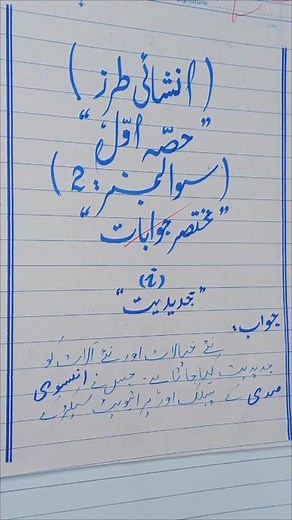 (انشائی طرز)
"حصہ اوّل"
(سوالنمبر: 2)
"مختصر جوابات"
(i)
"جدیدیت"
جواب:
نئے خیالات اور نئے آلات کو
جدیدیت کہا جاتا ہے۔ جس نے انیسویں
صدی کے پبلک اور پرائیویٹ سیکٹر